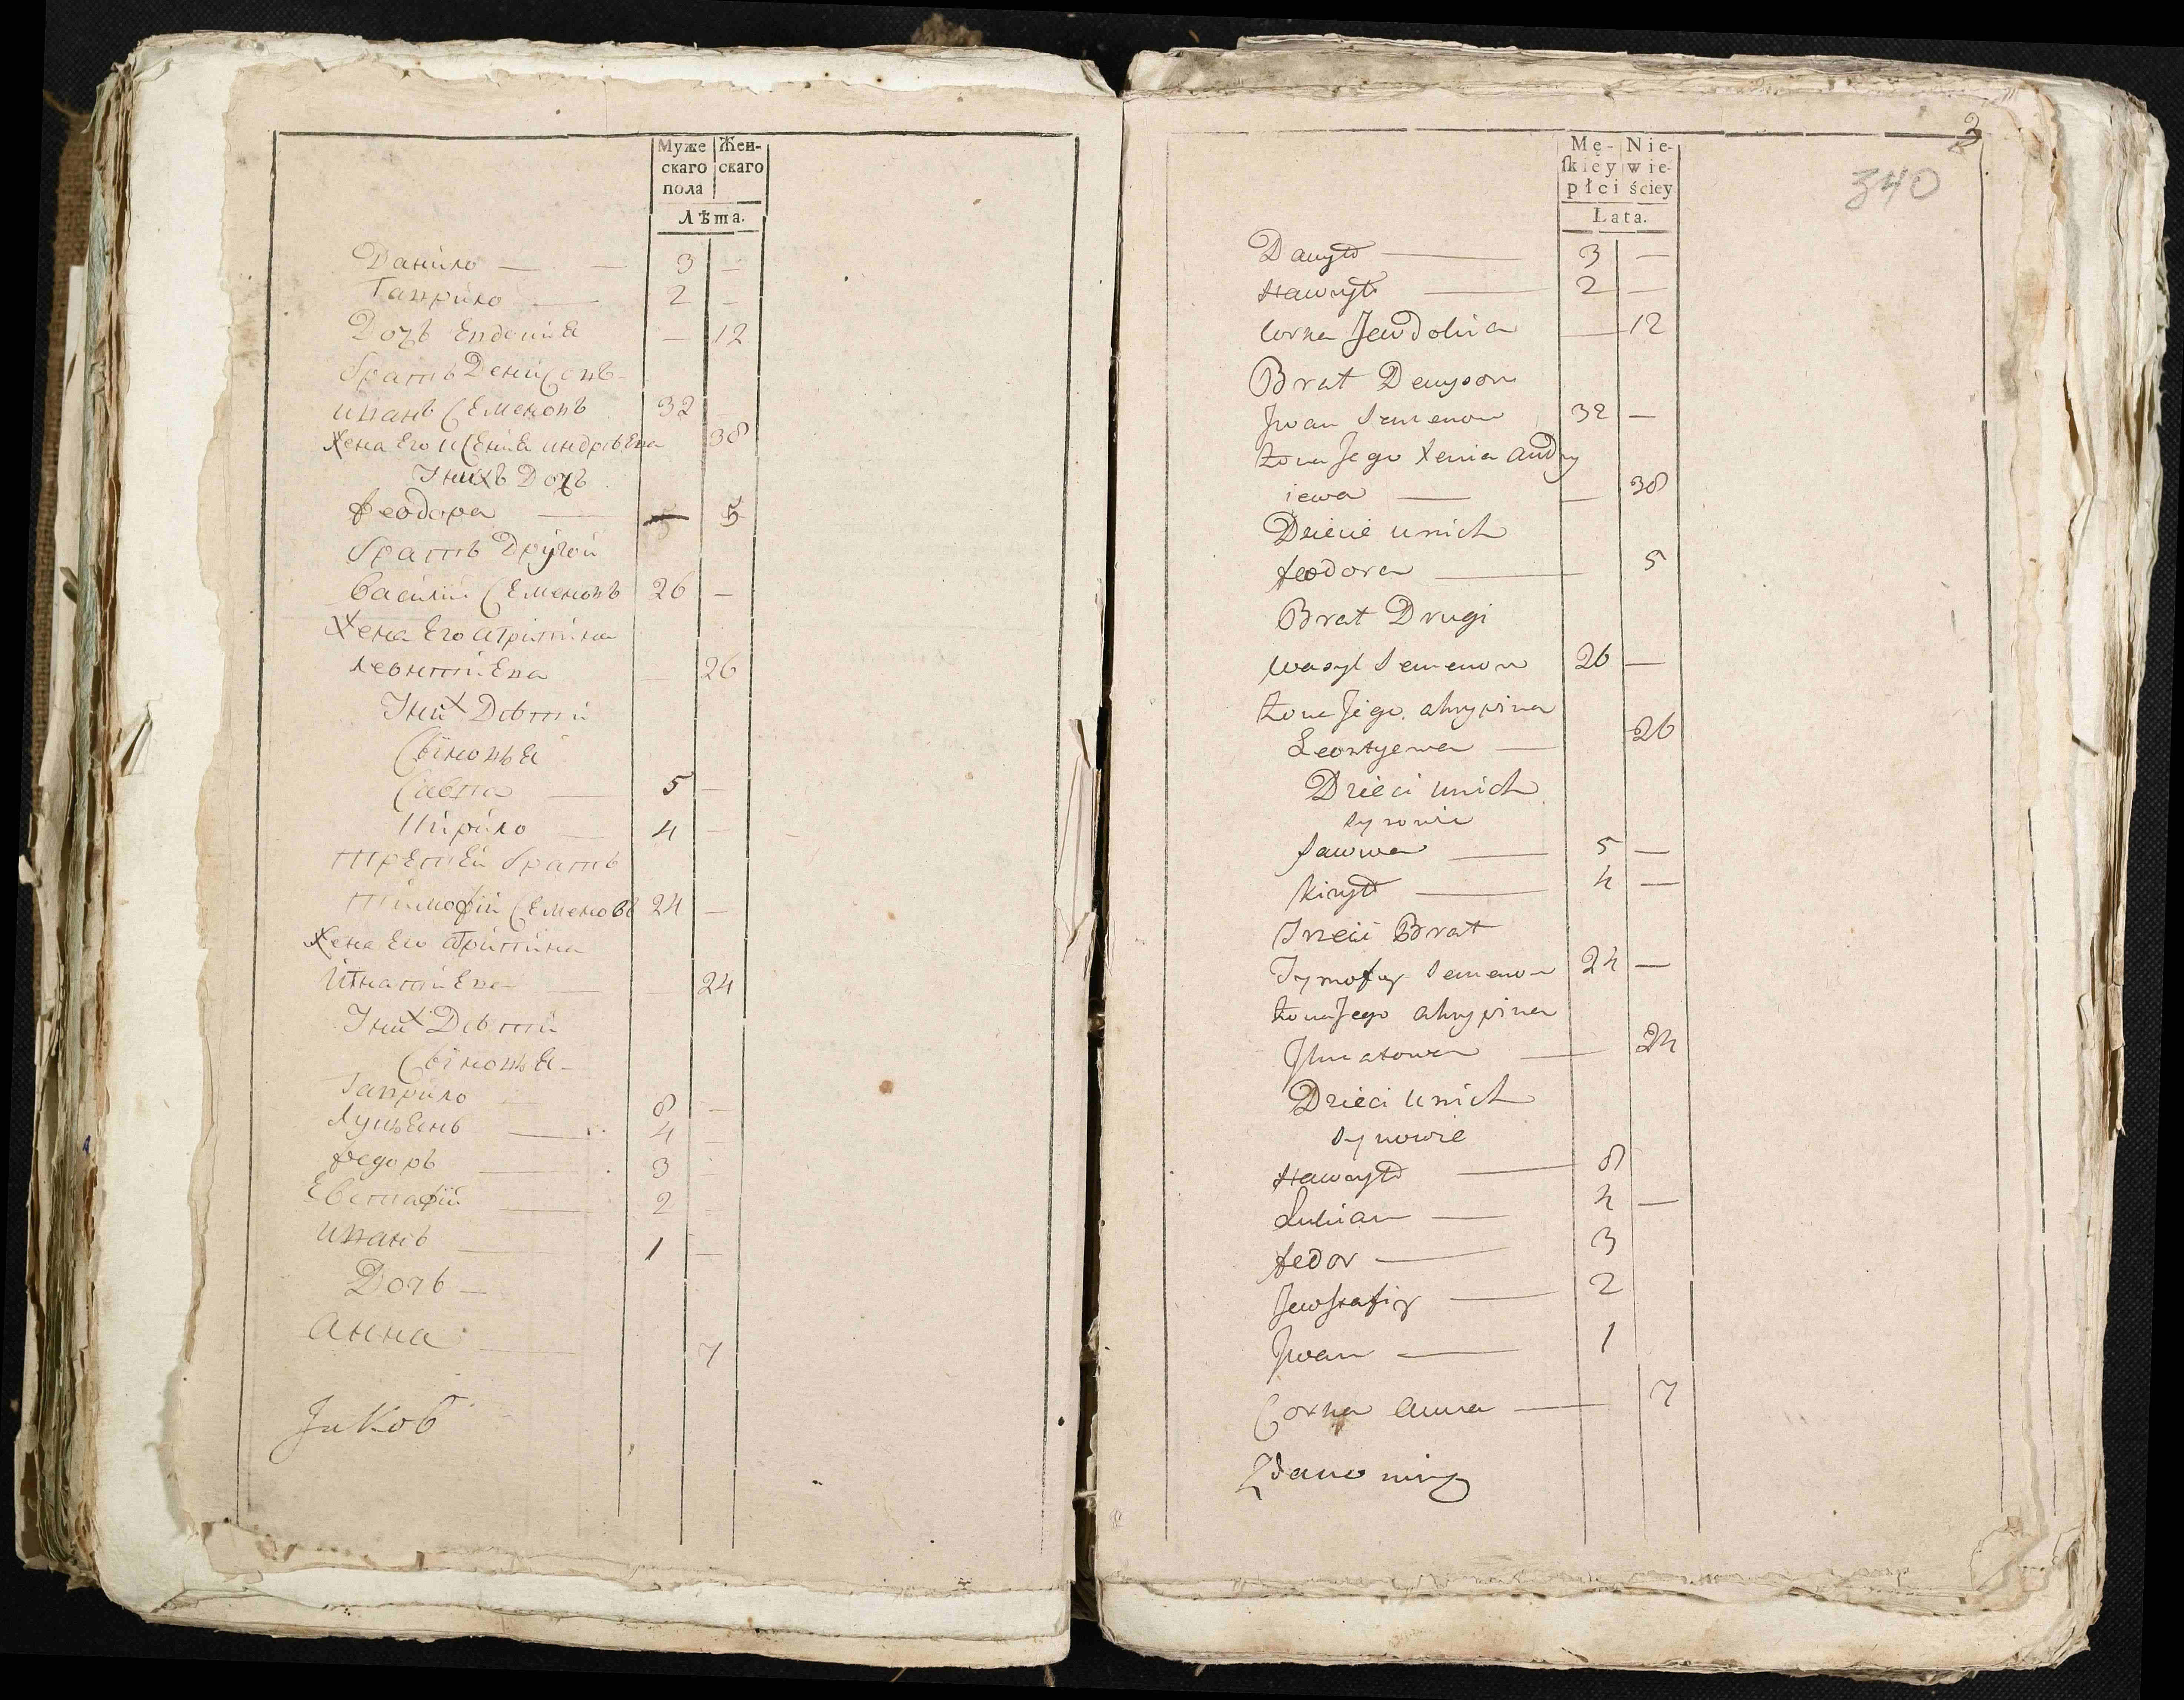 Муже Жен-
скаго скаго
пола
Лѣта.
Данило — — 3 —
Гаврило — 2 —
Дочь Евдокиа — 12
братъ Денисовъ
иванъ Семеновъ 32 —
Жена Его иСения индрѣЕва 38
Iнихъ Дочь
Феодора — 5 5
братъ Другой
Василий СЕменовъ 26 —
Жена Его агрипина
леонтиЕва — 26
Iних Дѣти
Сыновья
Савва — 5 —
Кирило — 4 —
трЕтиЕй братъ
тимофий СЕменовъ 24 —
Жена Его агрипина
ИгнатиЕва — 24
Iних Дѣти
Сыновья
Гаврило — 8 —
Лукъянъ — 4 —
Федоръ — 3 —
Евстафий — 2 —
иванъ — 1 —
Дочь —
Анна — 7
Jaкоб
2
340
Mę- Nie-
ſkiey wie-
płci ściey
Lata.
Danyło — 3 —
Hawryło — 2 —
Corka Jewdokia — 12
Brat Denysow
Jwan Semenow 32 —
żona Jego Xenia Andry
iewa — — 38
Dziecie unich
feodora — 5
Brat Drugi
Wasyl Semenow 26 —
żona Jego ahrypina
Leontyewa — 26
Dzieci unich
synowie
Sawwa — 5 —
Kiryło — 4 —
Trzeci Brat
Tymofiy Semenow 24 —
żona Jego ahrypina
Jhnatowa — 24
Dzieci unich
synowie
Hawryło — 8
Lukian — 4 —
fedor — 3
Jewstafiy — 2
Jwan — 1
Corka Anna — 7